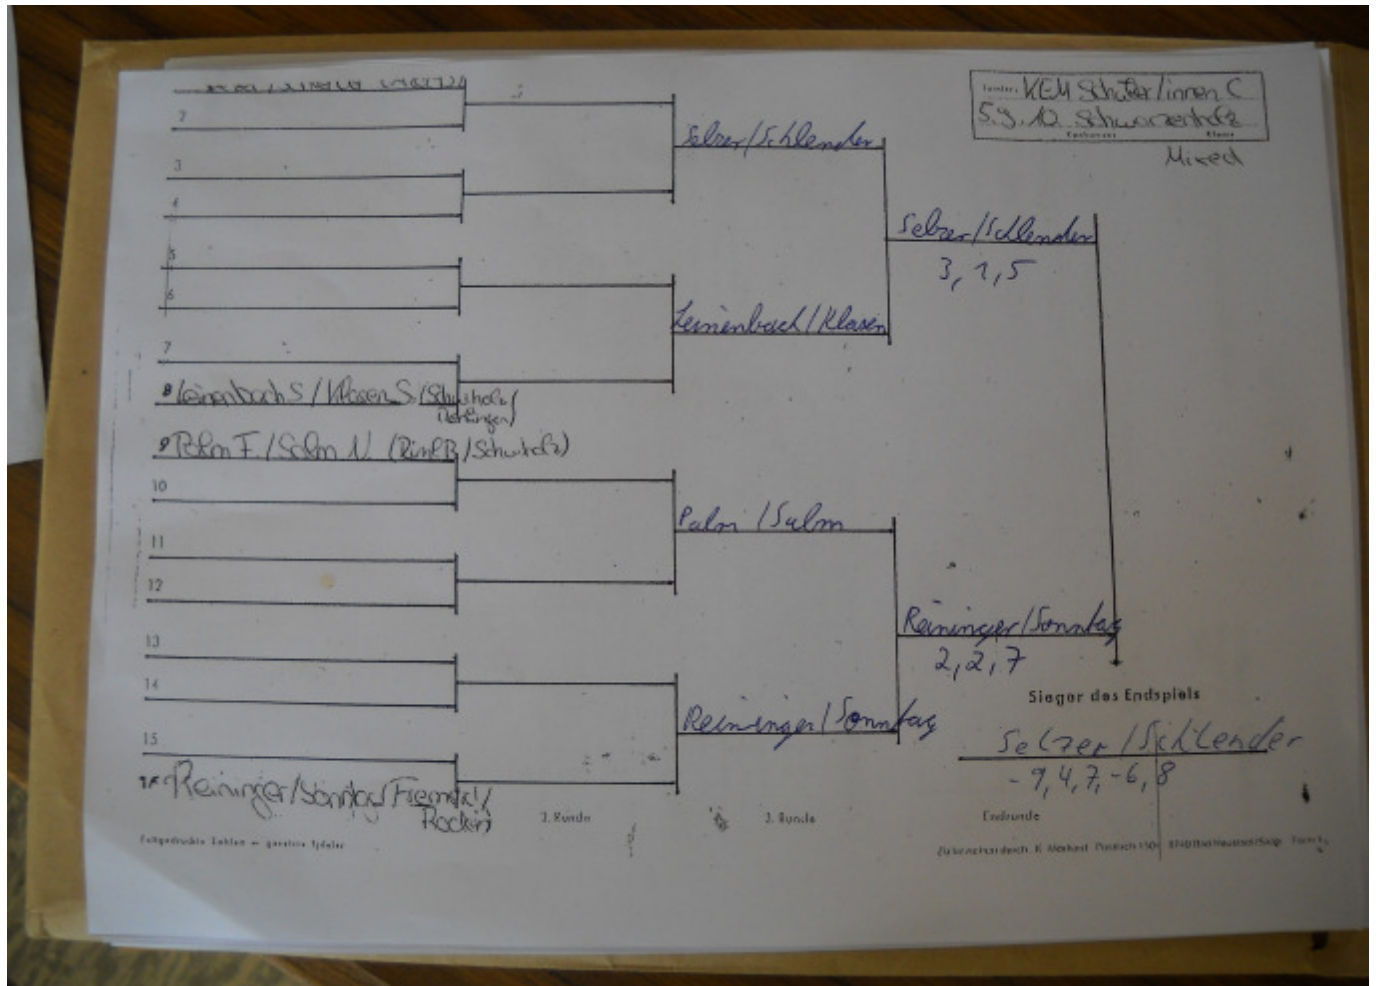 KEM Schüler/innen C
5.9.10 Schwarzenholz
Klasse
Mixed
2
3
4
5
6
7
8 Leinenbach S / Klasen S. (Schwholz/
9 Palm F. / Salm N. (Rim.B/Schwholz)
10
11
12
13
14
15
16 Reininger/Sonntag
Selzer/Schlender
Leinenbach/Klasen
Palm/Salm
Reininger/Sonntag
Selzer/Schlender
3, 1, 5
Reininger/Sonntag
2, 2, 7
Sieger des Endspiels
Selzer/Schlender
- 9, 4, 7, - 6, 8
2. Runde
3. Runde
Endrunde
Fettgedruckte Zahlen = gesetzte Spieler